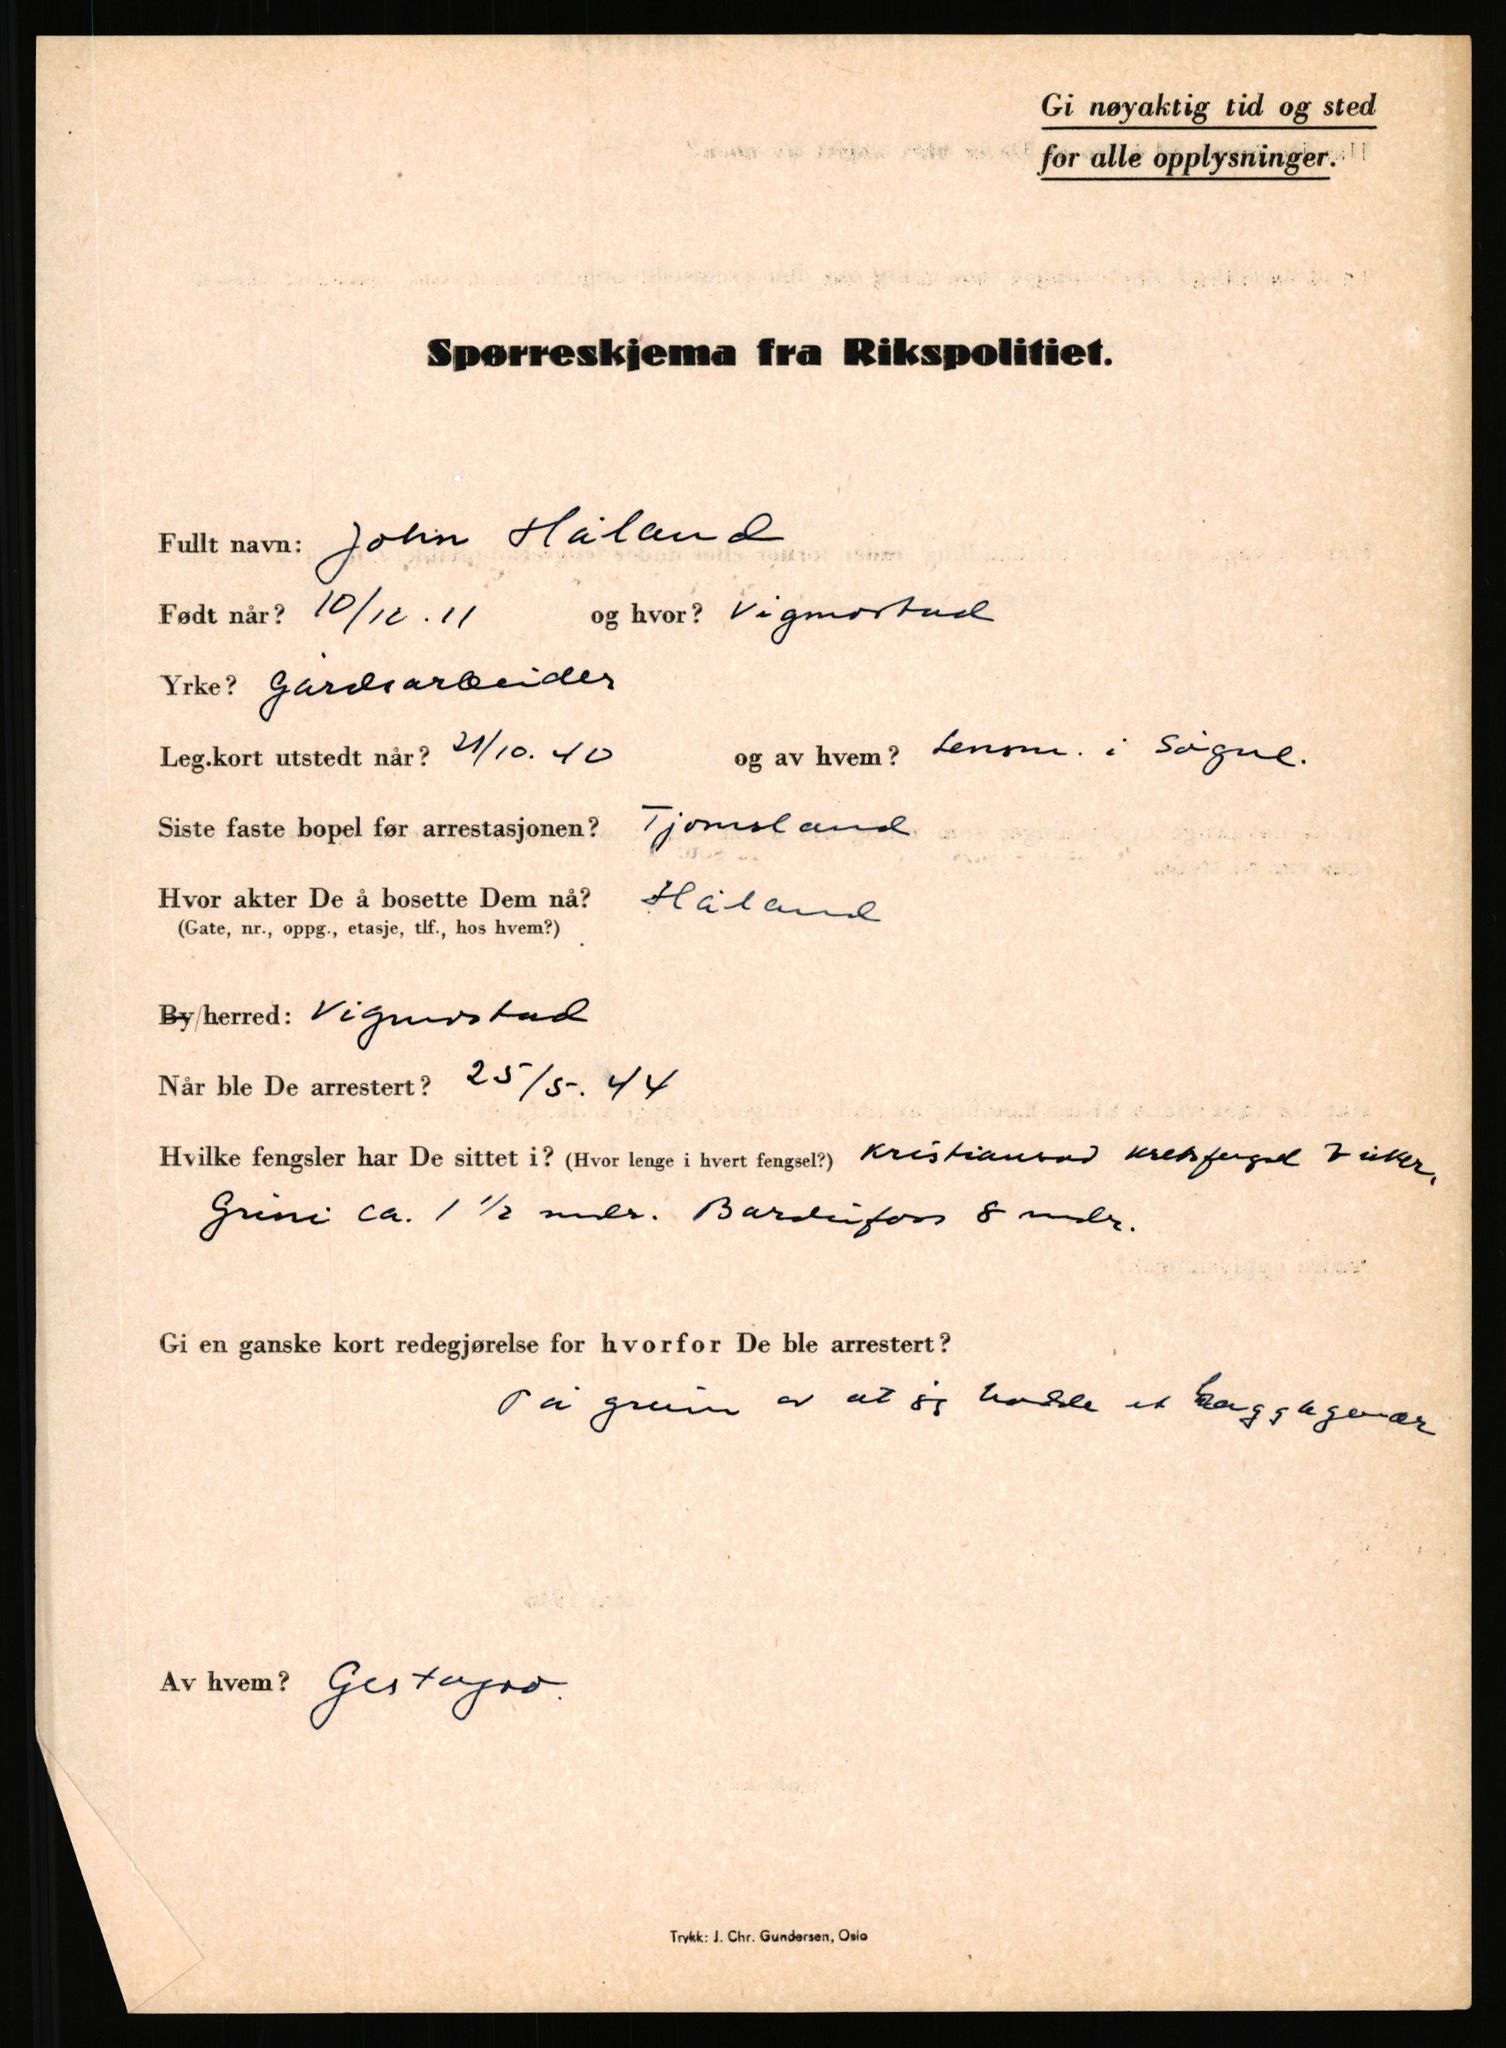 Gi nøyaktig tid og sted
for alle opplysninger.
Spørreskjema fra Rikspolitiet.
Fullt navn: John Håland
Født når? 10/12.11 og hvor? Vigmostad
Yrke? Gårdsarbeider
Leg.kort utstedt når? 21/10.40 og av hvem? Lensm. i Søgne.
Siste faste bopel før arrestasjonen? Tjomsland
Hvor akter De å bosette Dem nå? Håland
(Gate, nr., oppg., etasje, tlf., hos hvem?)
By/herred: Vigmostad
Når ble De arrestert? 25/5.44
Hvilke fengsler har De sittet i? (Hvor lenge i hvert fengsel?) Kristiansand kretsfengsel 7 uker.
Grini ca. 1 1/2 mdr. Bardufoss 8 mdr.
Gi en ganske kort redegjørelse for hvorfor De ble arrestert?
På grunn av at jeg hadde et
Av hvem? Gestapo.
Trykk: J. Chr. Gundersen, Oslo